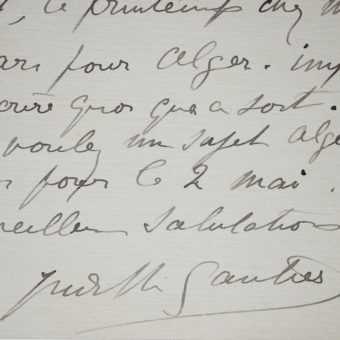 , le printemps chez m
ars pour Alger. imp
crire quoi que ce soit.
voulez un sujet Alge
s pour le 2 mai.
eilleures salutations
Judith Gautier